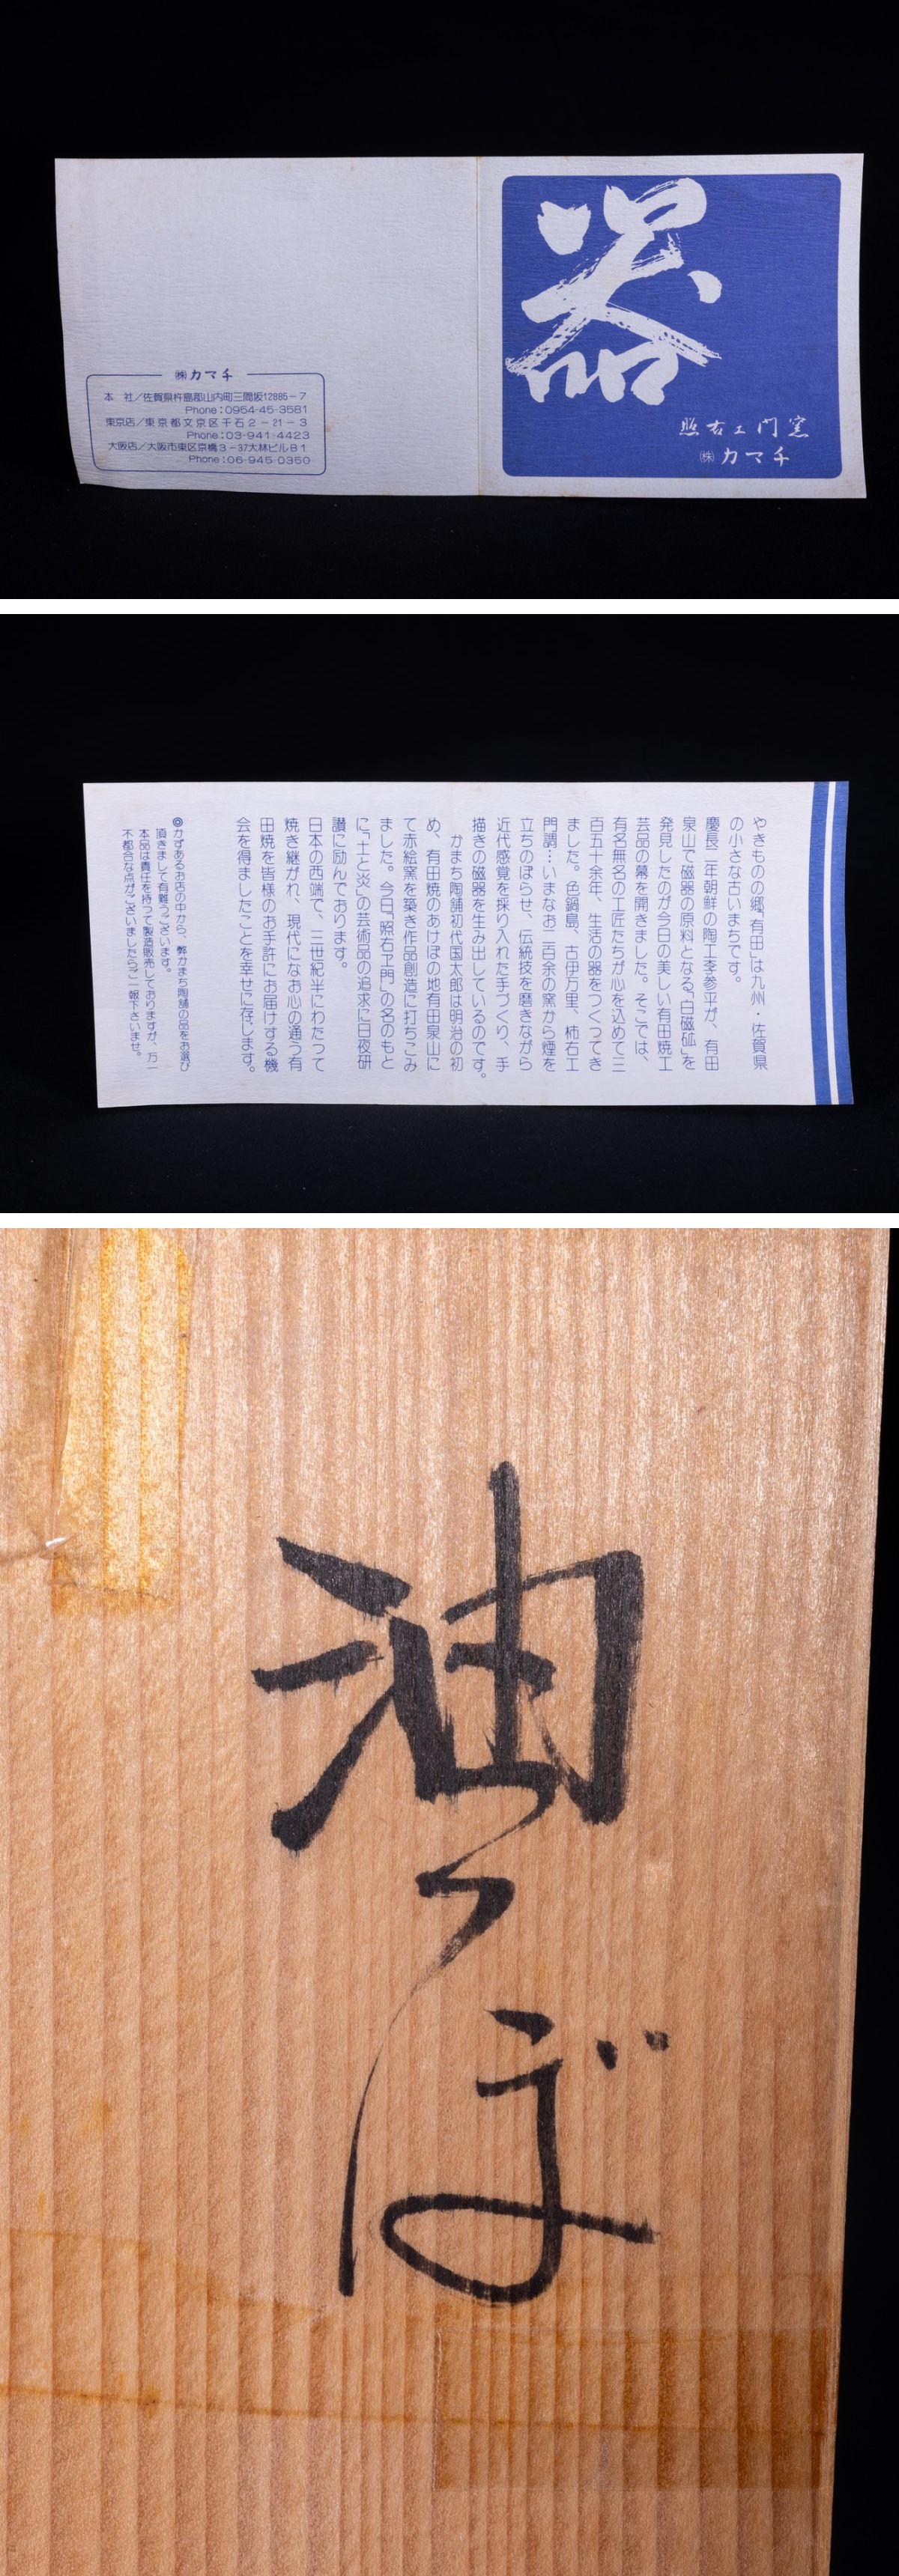 器
照右エ門窯
㈱カマチ
㈱カマチ
本　社／佐賀県杵島郡山内町三間坂12885－7
Phone：0954-45-3581
東京店／東京都文京区千石2－21－3
Phone：03-941-4423
大阪店／大阪市東区京橋3－37大林ビルB1
Phone：06-945-0350
やきものの郷「有田」は九州・佐賀県
の小さな古いまちです。
慶長二年朝鮮の陶工李参平が、有田
泉山で磁器の原料となる「白磁砿」を
発見したのが今日の美しい有田焼工
芸品の幕を開きました。そこでは、
有名無名の工匠たちが心を込めて三
百五十余年、生活の器をつくってき
ました。色鍋島、古伊万里、柿右エ
門調…いまなお二百余の窯から煙を
立ちのぼらせ、伝統技を磨きながら
近代感覚を採り入れた手づくり、手
描きの磁器を生み出しているのです。
かまち陶舗初代国太郎は明治の初
め、有田焼のあけぼの地有田泉山に
て赤絵窯を築き作品創造に打ちこみ
ました。今日「照右ヱ門」の名のもと
に「土と炎」の芸術品の追求に日夜研
讃に励んでおります。
日本の西端で、三世紀半にわたって
焼き継がれ、現代になお心の通う有
田焼を皆様のお手許にお届けする機
会を得ましたことを幸せに存じます。
◎かずあるお店の中から、弊かまち陶舗の品をお選び
頂きまして有難うございます。
本品は責任を持つて製造販売しておりますが、万一
不都合な点がございましたらご一報下さいませ。
油つぼ